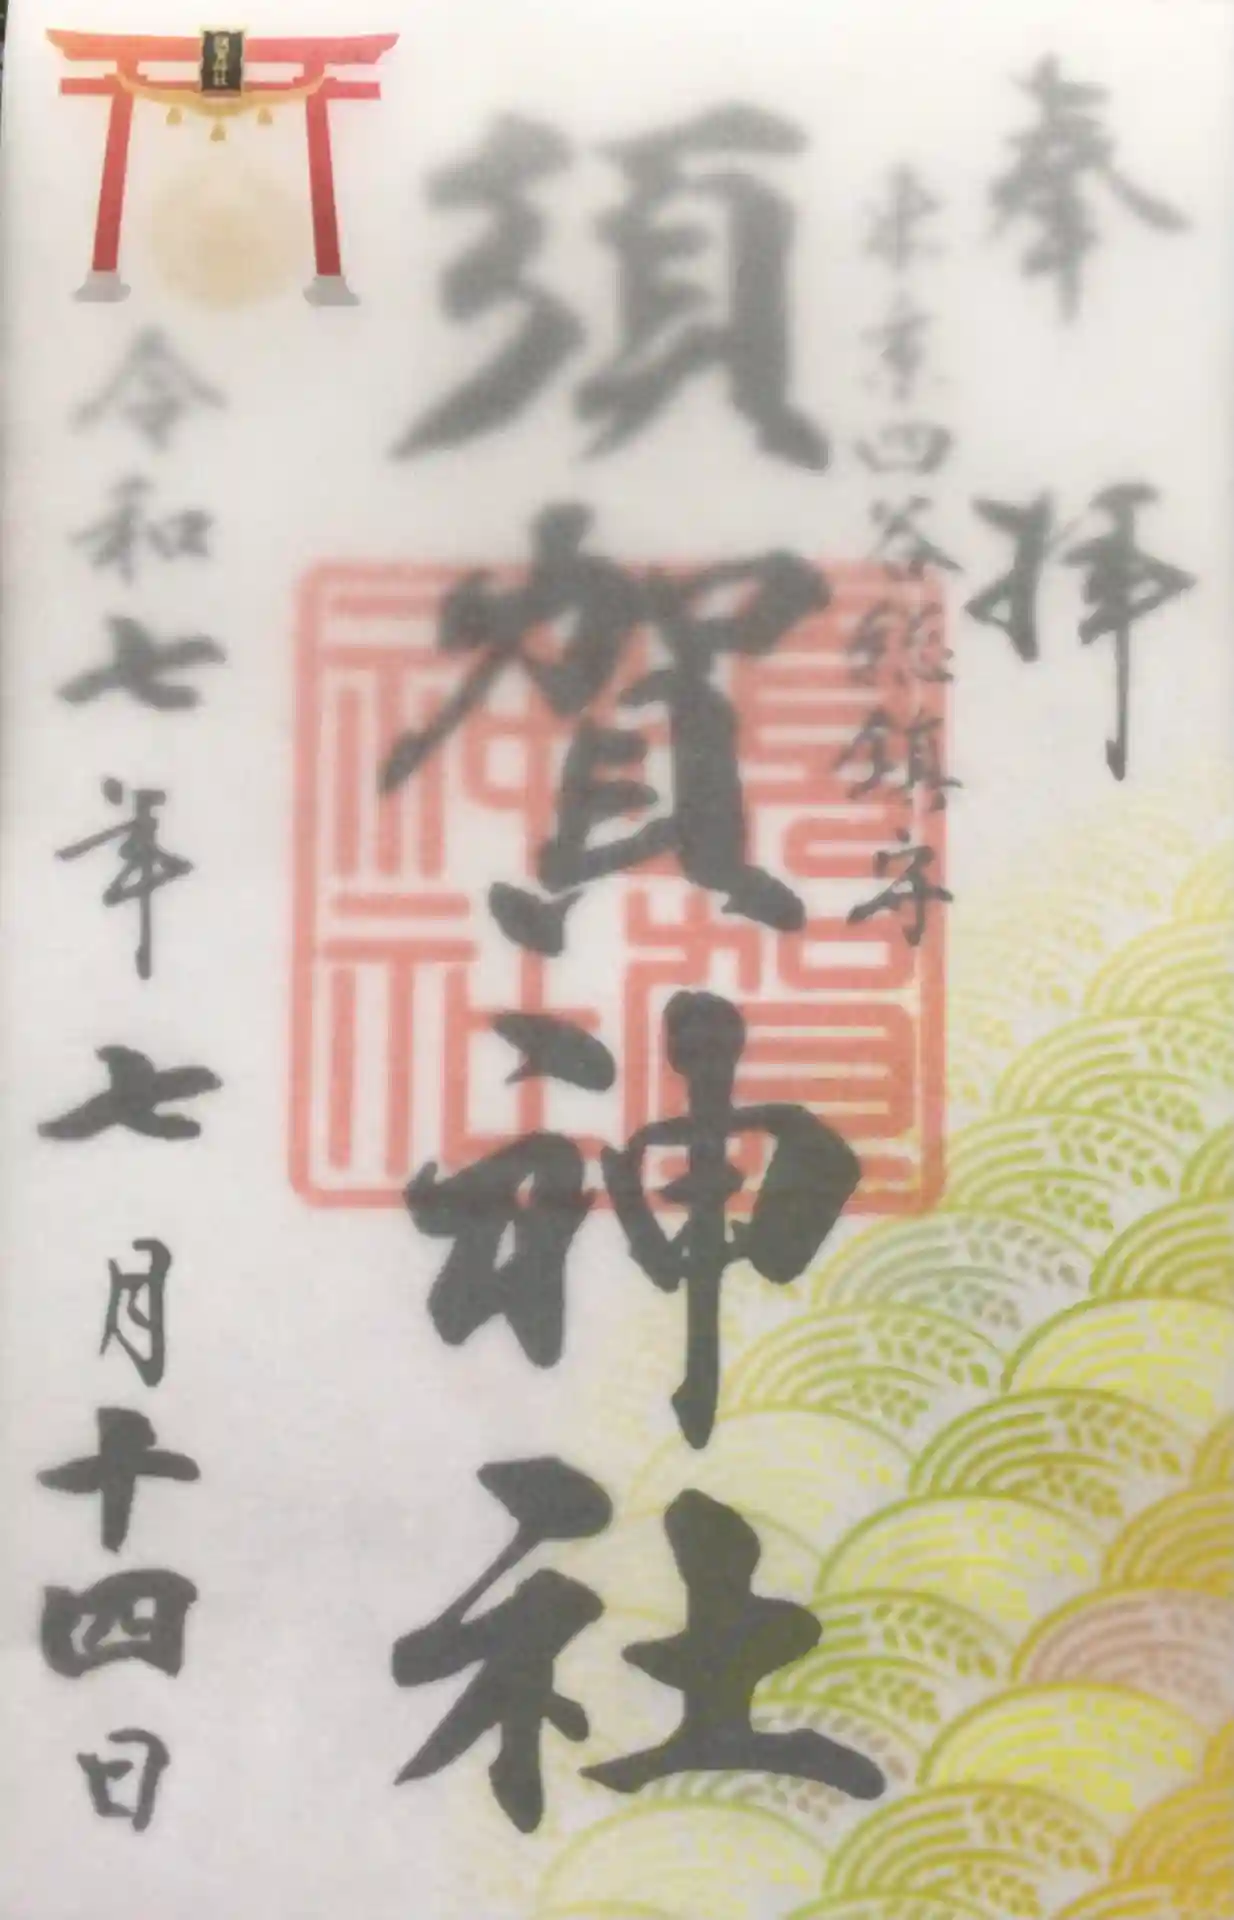 奉拝
東京四谷總鎮守
須賀神社
須賀神社
令和七年七月十四日
須賀神社